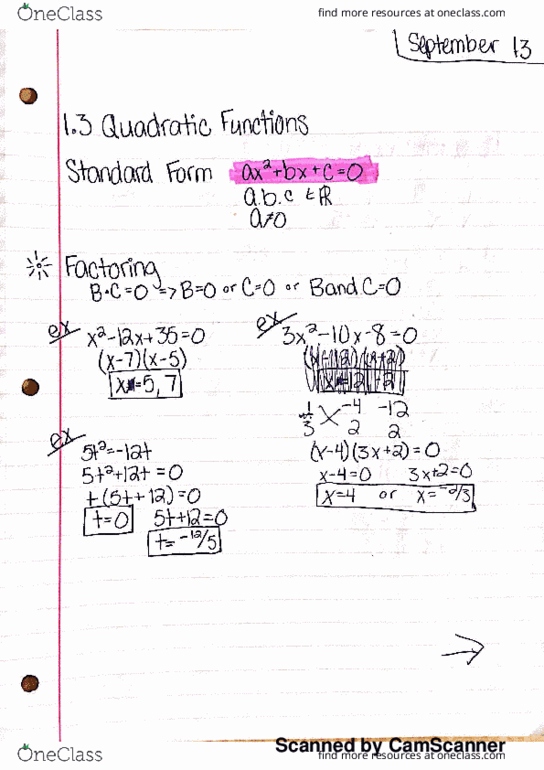 OneClass
find more resources at oneclass.com
September 13
1.3 Quadratic Functions
Standard Form ax²+bx+c=0
a.b.c ∈ ℝ
a≠0
Factoring
B·C=0 => B=0 or C=0 or B and C=0
ex x²-12x+35=0
(x-7)(x-5)
x=5,7
ex 3x²-10x-8=0
1 -4 -12
3 2 2
(x-4)(3x+2)=0
x-4=0 3x+2=0
x=4 or x=-2/3
ex 5t²=-12t
5t²+12t=0
t(5t+12)=0
t=0 5t+12=0
t=-12/5
Scanned by CamScanner
OneClass
find more resources at oneclass.com